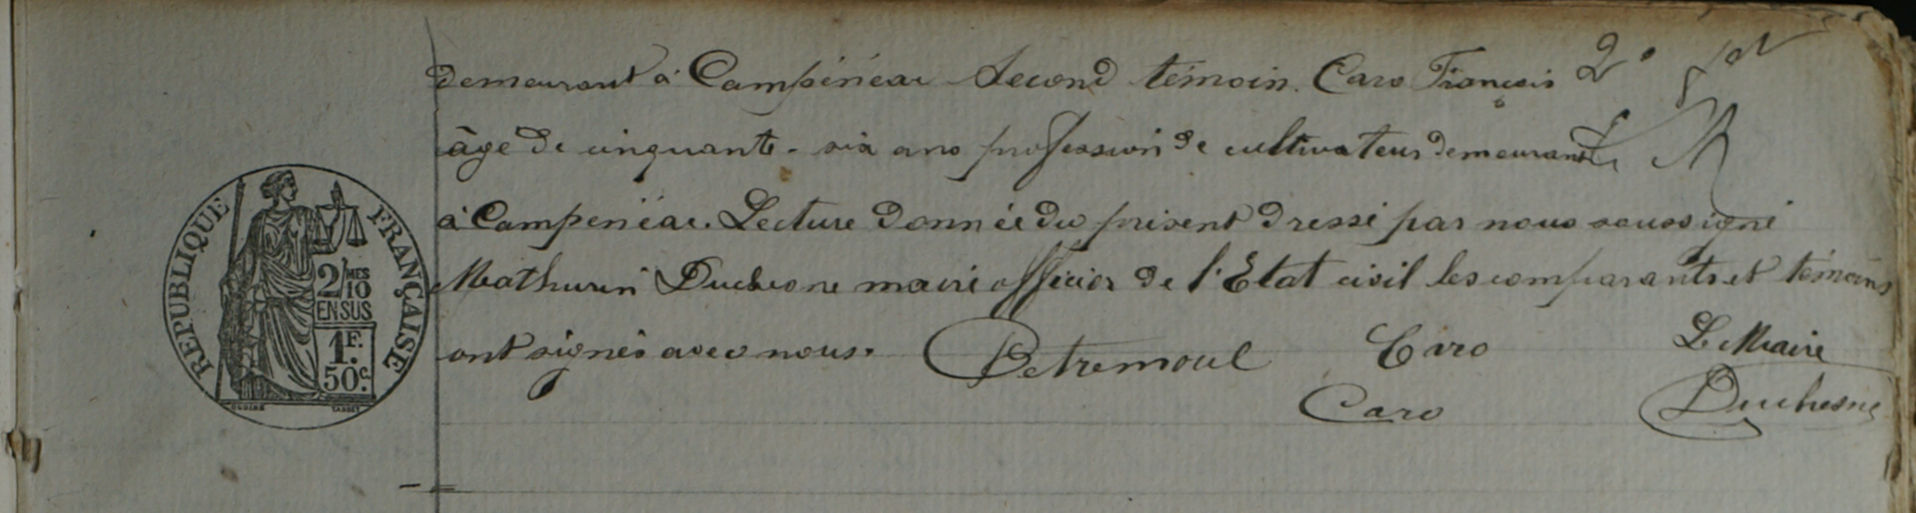 demeurant à Campénéac Second témoin. Caro François 2e fet
âgé de cinquante-six ans profession de cultivateur demeurant
à Campénéac. Lecture donnée du présent dressé par nous soussigné
Mathurin Duchesne maire officier de l'Etat civil les comparants et témoins
ont signés avec nous.
Petremoul Caro Le Maire
Caro Duchesne
REPUBLIQUE FRANÇAISE
2/MES
10
EN SUS
1F.
50c.
OUDINÉ TARDET